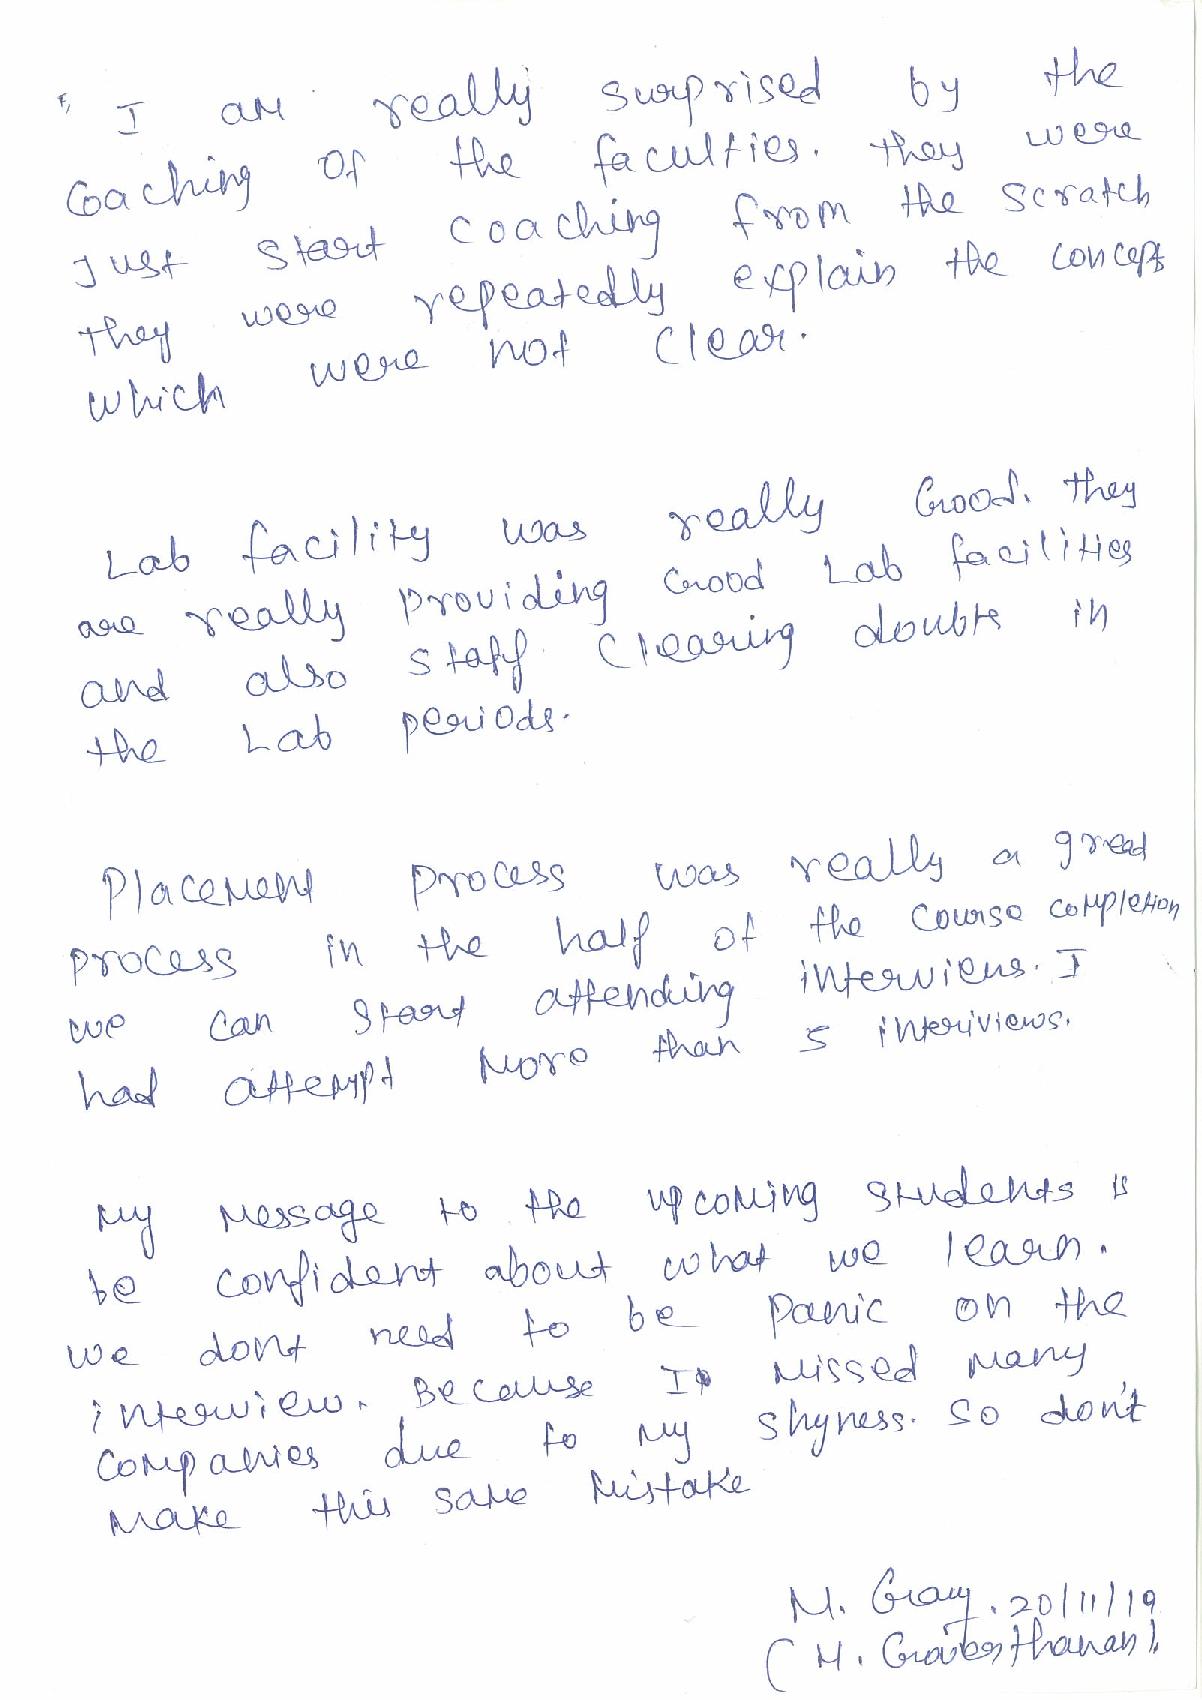 I am really surprised by the
Coaching of the faculties. they were
Just start coaching from the scratch
they were repeatedly explain the concept
which were not clear.
Lab facility was really Good. they
are really providing Good Lab facilities
and also staff clearing doubts in
the Lab periods.
Placement process was really a great
process in the half of the course completion
we can start attending interviews. I
had attempt more than 5 interiviews.
My message to the upcoming students is
be confident about what we learn.
we dont need to be panic on the
interview. Because I missed many
companies due to my shyness. So don't
make this same mistake
M. 20/11/19
(M.